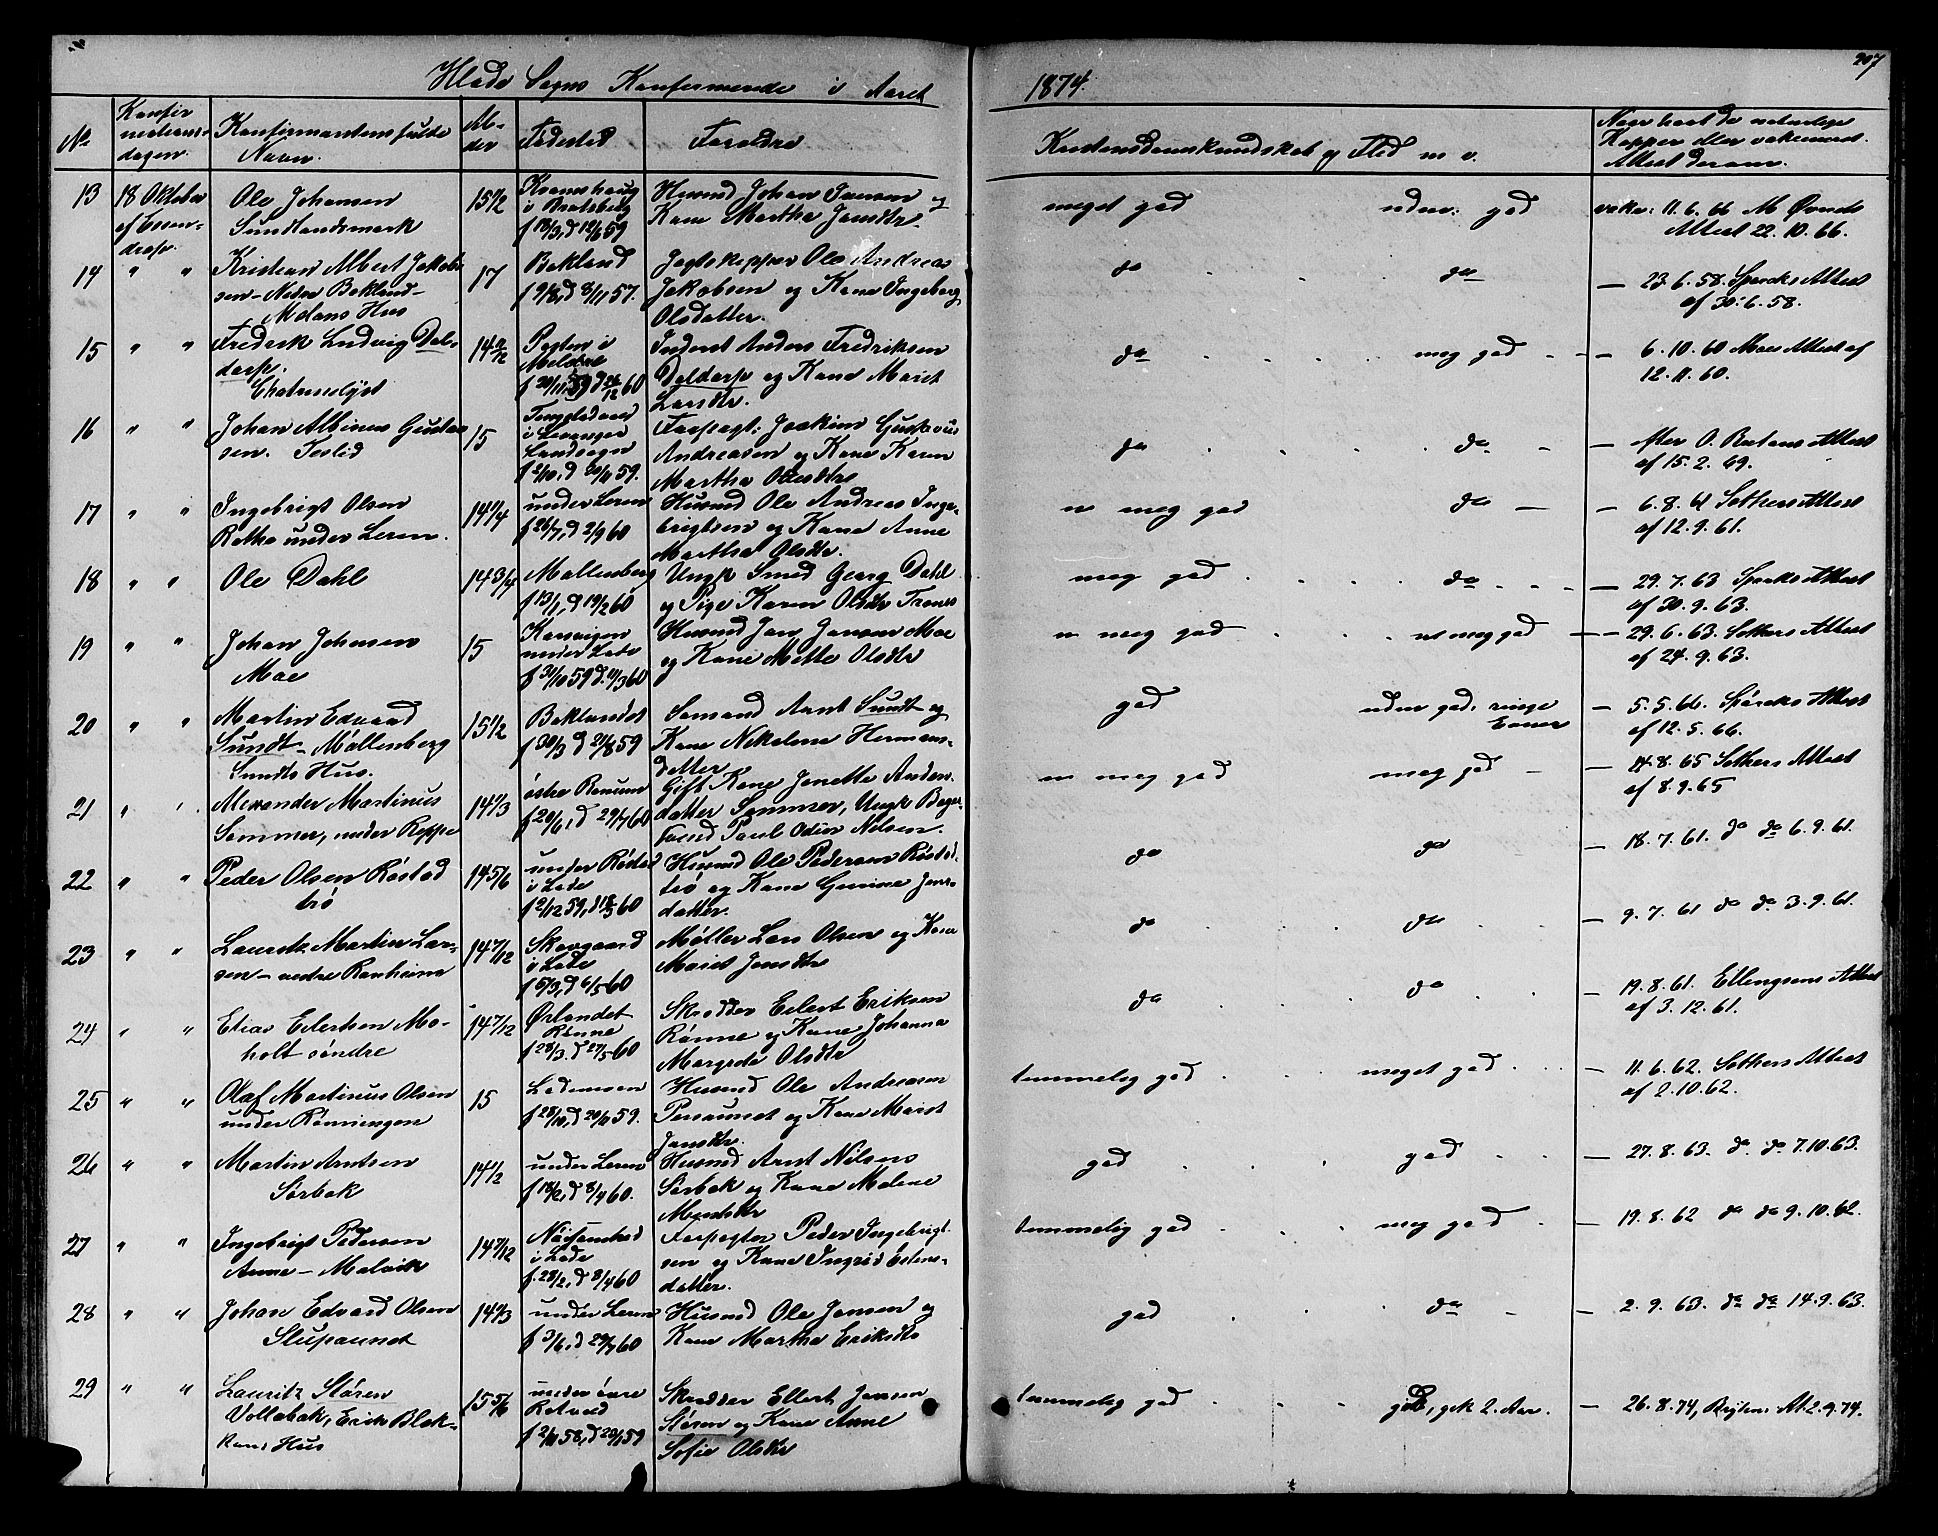 207
Hlade Sogns Konfirmerede i Aaret 1874.
No
Konfir
mations
dagen.
Konfirmantens fulde
Navn.
Al-
der
Fødested
Forældre
Kristendomskundskab og Flid m. v.
Naar havt de naturlige
Kopper eller vakcineret.
Attest derom.
13
18 Oktober
af Essen-
drop.
Ole Johansen
Sundlandsmark
15 1/2
i Bratsberg
f 18/3, d 12/6 59
Husmd Johan Iversen og
Kone Martha Jonsdtr.
meget god
udm. god
vakc: 11.6.66 M. Øvnds
Attest 22.10.66.
14
" "
Kristian Albert Jakob-
sen - Nedre Bakland-
Molans Hus
17
Bakland
f 9/8, d 8/11 57.
Jagtskipper Ole Andreas
Jakobsen og Kone Ingeborg
Olsdatter.
do
do
— 23.6.58. Spørcks Attest
af 30.6.58.
15
" "
Fredrik Ludvig Dal-
dorp.
Charlottenlyst
14 11/12
i
Meldal
f 20/11 59 d 26/12 60
Inderst Anders Fredriksen
Daldorp og Kone Marit
Larsdtr.
do
meg god
— 6.10.60 Moes Attest af
12.11.60.
16
" "
Johan Albinus Gustav-
sen. Teslid
15
i Levanger
Landsogn
f 2/10, d 20/11 59.
Forpagt: Joakim Gustavus
Andreasen og Kone Karen
Martha Olesdtr
do
do
— efter O. Attest
af 15.2.69.
17
" "
Ingebrigt Olsen
Rotha under Leren.
14 1/4
under Leren
f 26/7, d 2/9 60
Husmd Ole Andreas Inge-
brigtsen og Kone Anne
Martha Olsdtr.
n meg god
do
— 6.8.61 Sothers Attest
af 12.9.61.
18
" "
Ole Dahl
14 3/4
Møllenberg
f 13/1, d 19/2 60
Ungk Smed Georg Dahl
og Pige Karen Olsdtr Trones
meg god
do
— 29.7.63 Spørcks Attest
af 30.9.63.
19
" "
Johan Johnsen
Moe
15
under Lade
f 31/10 59 d. 11/3 60
Husmd Jon Jonsen Moe
og Kone Mette Olsdtr
n meg god
n meg god
— 29.6.63. Sothers Attest
af 24.9.63.
20
" "
Martin Edvard
Sundt - Møllenberg
Sundts Hus.
15 1/2
Baklandet
f 30/3 d 21/8 59
Sømand Arnt Sundt og
Kone Nikoline Hermans-
datter
god
udm god. ringe
Evner
— 5.5.66. Spørcks Attest
af 12.5.66.
21
" "
Alexander Martinus
Sommer, under Reppe
14 1/3
østre Ranum
f 20/6, d 29/7 60
Gift Kone Jonette Anders-
datter Sommer, Ungk Bager-
svend Paul Odin Nilsen.
n meg god
meg god
— 14.8.65 Sothers Attest
af 8.9.65
22
" "
Peder Olsen Røstad
trø
14 5/6
under Røstad
i Lade
f 2/12 59, d 18/3 60
Husmd Ole Pedersen Røstad
trø og Kone Gurine Jons-
datter.
do
do
— 18.7.61. do do 6.9.61.
23
" "
Lauritz Martin Lar-
sen - nedre Ranheim
14 7/12
Skovgaard
i Lade
f 5/3, d 6/5 60
Møller Lars Olsen og Kone
Marit Jonsdtr
do
do
— 9.7.61 do do 3.9.61.
24
" "
Elias Eilertsen Mo-
holt søndre
14 7/12
Ørlandet
Rønne
f 28/3. d 27/5 60
Skrædder Eilert Eriksen
Rønne og Kone Johanna
Margrete Olsdtr
do
do
— 19.8.61. Ellingsens Attest
af 3.12.61.
25
" "
Olaf Martinus Olsen
under Rønningen
15
Lademoen
f 28/10, d 20/11 59.
Husmd Ole Andreasen
Persaunet og Kone Marit
Jonsdtr.
temmelig god
meget god
— 11.6.62. Sothers Attest
af 2.10.62.
26
" "
Martin Arntsen
Sørbak
14 1/2
under Leren
f 18/2, d 8/4 60.
Husmd Arnt Nilsen
Sørbak og Kone Malene
god
god
— 27.8.63. do do 7.10.63.
27
" "
Ingebrigt Pedersen
Anne - Malvik
14 7/12
i Lade
f. 28/2, d 8/4 60
Forpagter Peder Ingebrigt-
sen og Kone Ingrid Estens-
datter.
temmelig god
meg god
— 19.8.62 do do 9.10.62.
28
" "
Johan Edvard Olsen
Stupaunet
14 1/3
under Leren
f 3/6, d 29/7 60
Husmd Ole Jonsen og
Kone Martha Eriksdtr
god
do
— 2.9.63. do do 14.9.63.
29
" "
Lauritz Støren
Vollabak, Erik Blok-
kans Hus
15 5/6
under øvre
Rotvold
f 2/11 58, d 20/1 59
Skrædder Ellert Jonsen
Støren og Kone Anne
Sofie Olsdtr
temmelig god
god, gik 2. Aar.
— 26.8.74, At. 2.9.74.